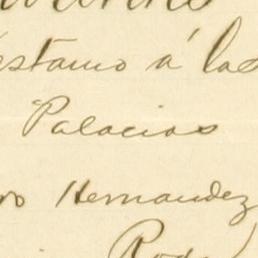 estamo á las
Palacios
ro Hernandez
Rod